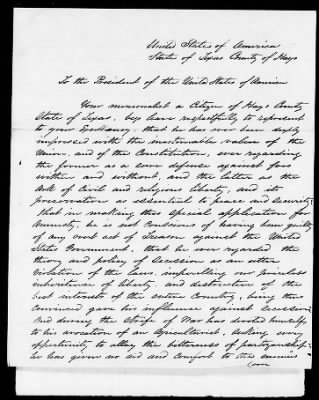 United States of America
State of Texas County of Hays
To the President of the United States of America
Your memorialist a Citizen of Hays County
State of Texas, begs leave respectfully to represent
to your Excellency; that he has ever been deeply
impressed with the inestimable values of the
Union, and of the Constitution, ever regarding
the former as a sure defense against foes
within and without, and the latter as the
Ark of Civil and religious liberty, and its
preservation as essential to peace and security:
that in making this special application for
Amnesty, he is not Conscious of having been guilty
of any overt act of Treason against the United
States Government, that he ever regarded the
theory and policy of Secession as an utter
violation of the laws, imperilling our priceless
inheritence of liberty and destructive of the
best interests of the entire Country, being thus
convinced gave his influence against Secession
And during the Strife of War has devoted himself
to his avocation of an Agriculturist, seeking every
opportunity to allay the bitterness of partizanship:
he has given no aid and comfort to the enemies